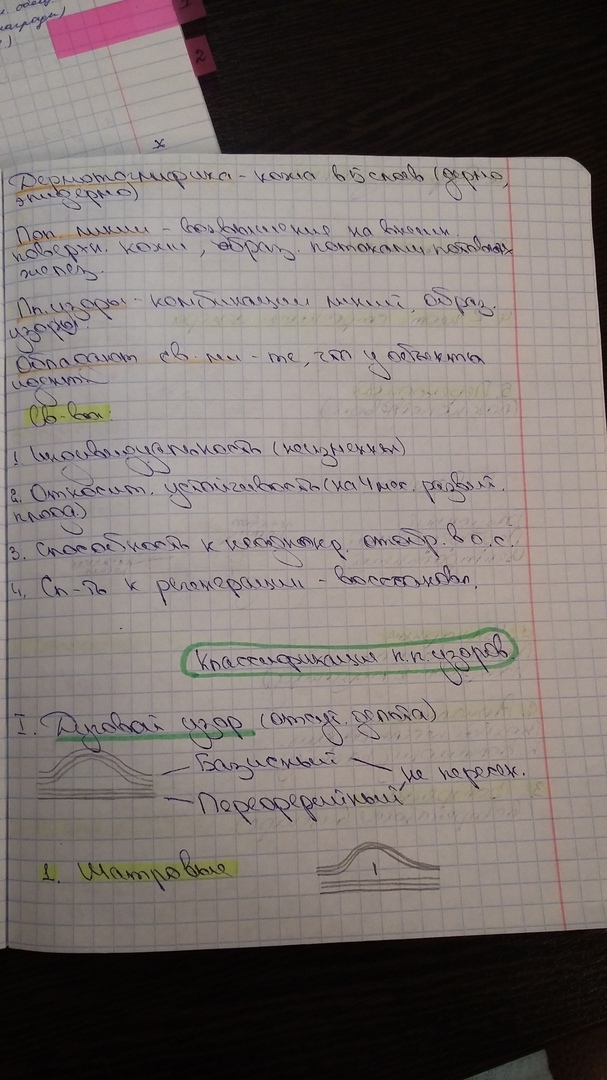 2
x
Дермотографика - кожа в 5 слоёв (дермо,
эпидермо)
Пап. линии - возвышение на внешн.
поверхн. кожи, образ. потоками потовых
желез.
Пп. узоры - комбинации линий, образ.
узоры.
Обладают св-ми - те, что у объекта
Св-ва:
1. Индивидуальность (неизменны)
2. Относит. устойчивость (на 4 мес. развит.
плода)
3. Способность к неоднокр. отобр. в о.с.
4. Сп-ть к регенерации - восстановл.
Классификация п.п. узоров
I. Дуговой узор (отсут. дельта)
Базисный
не пересек.
Переферейный
1. Шатровые